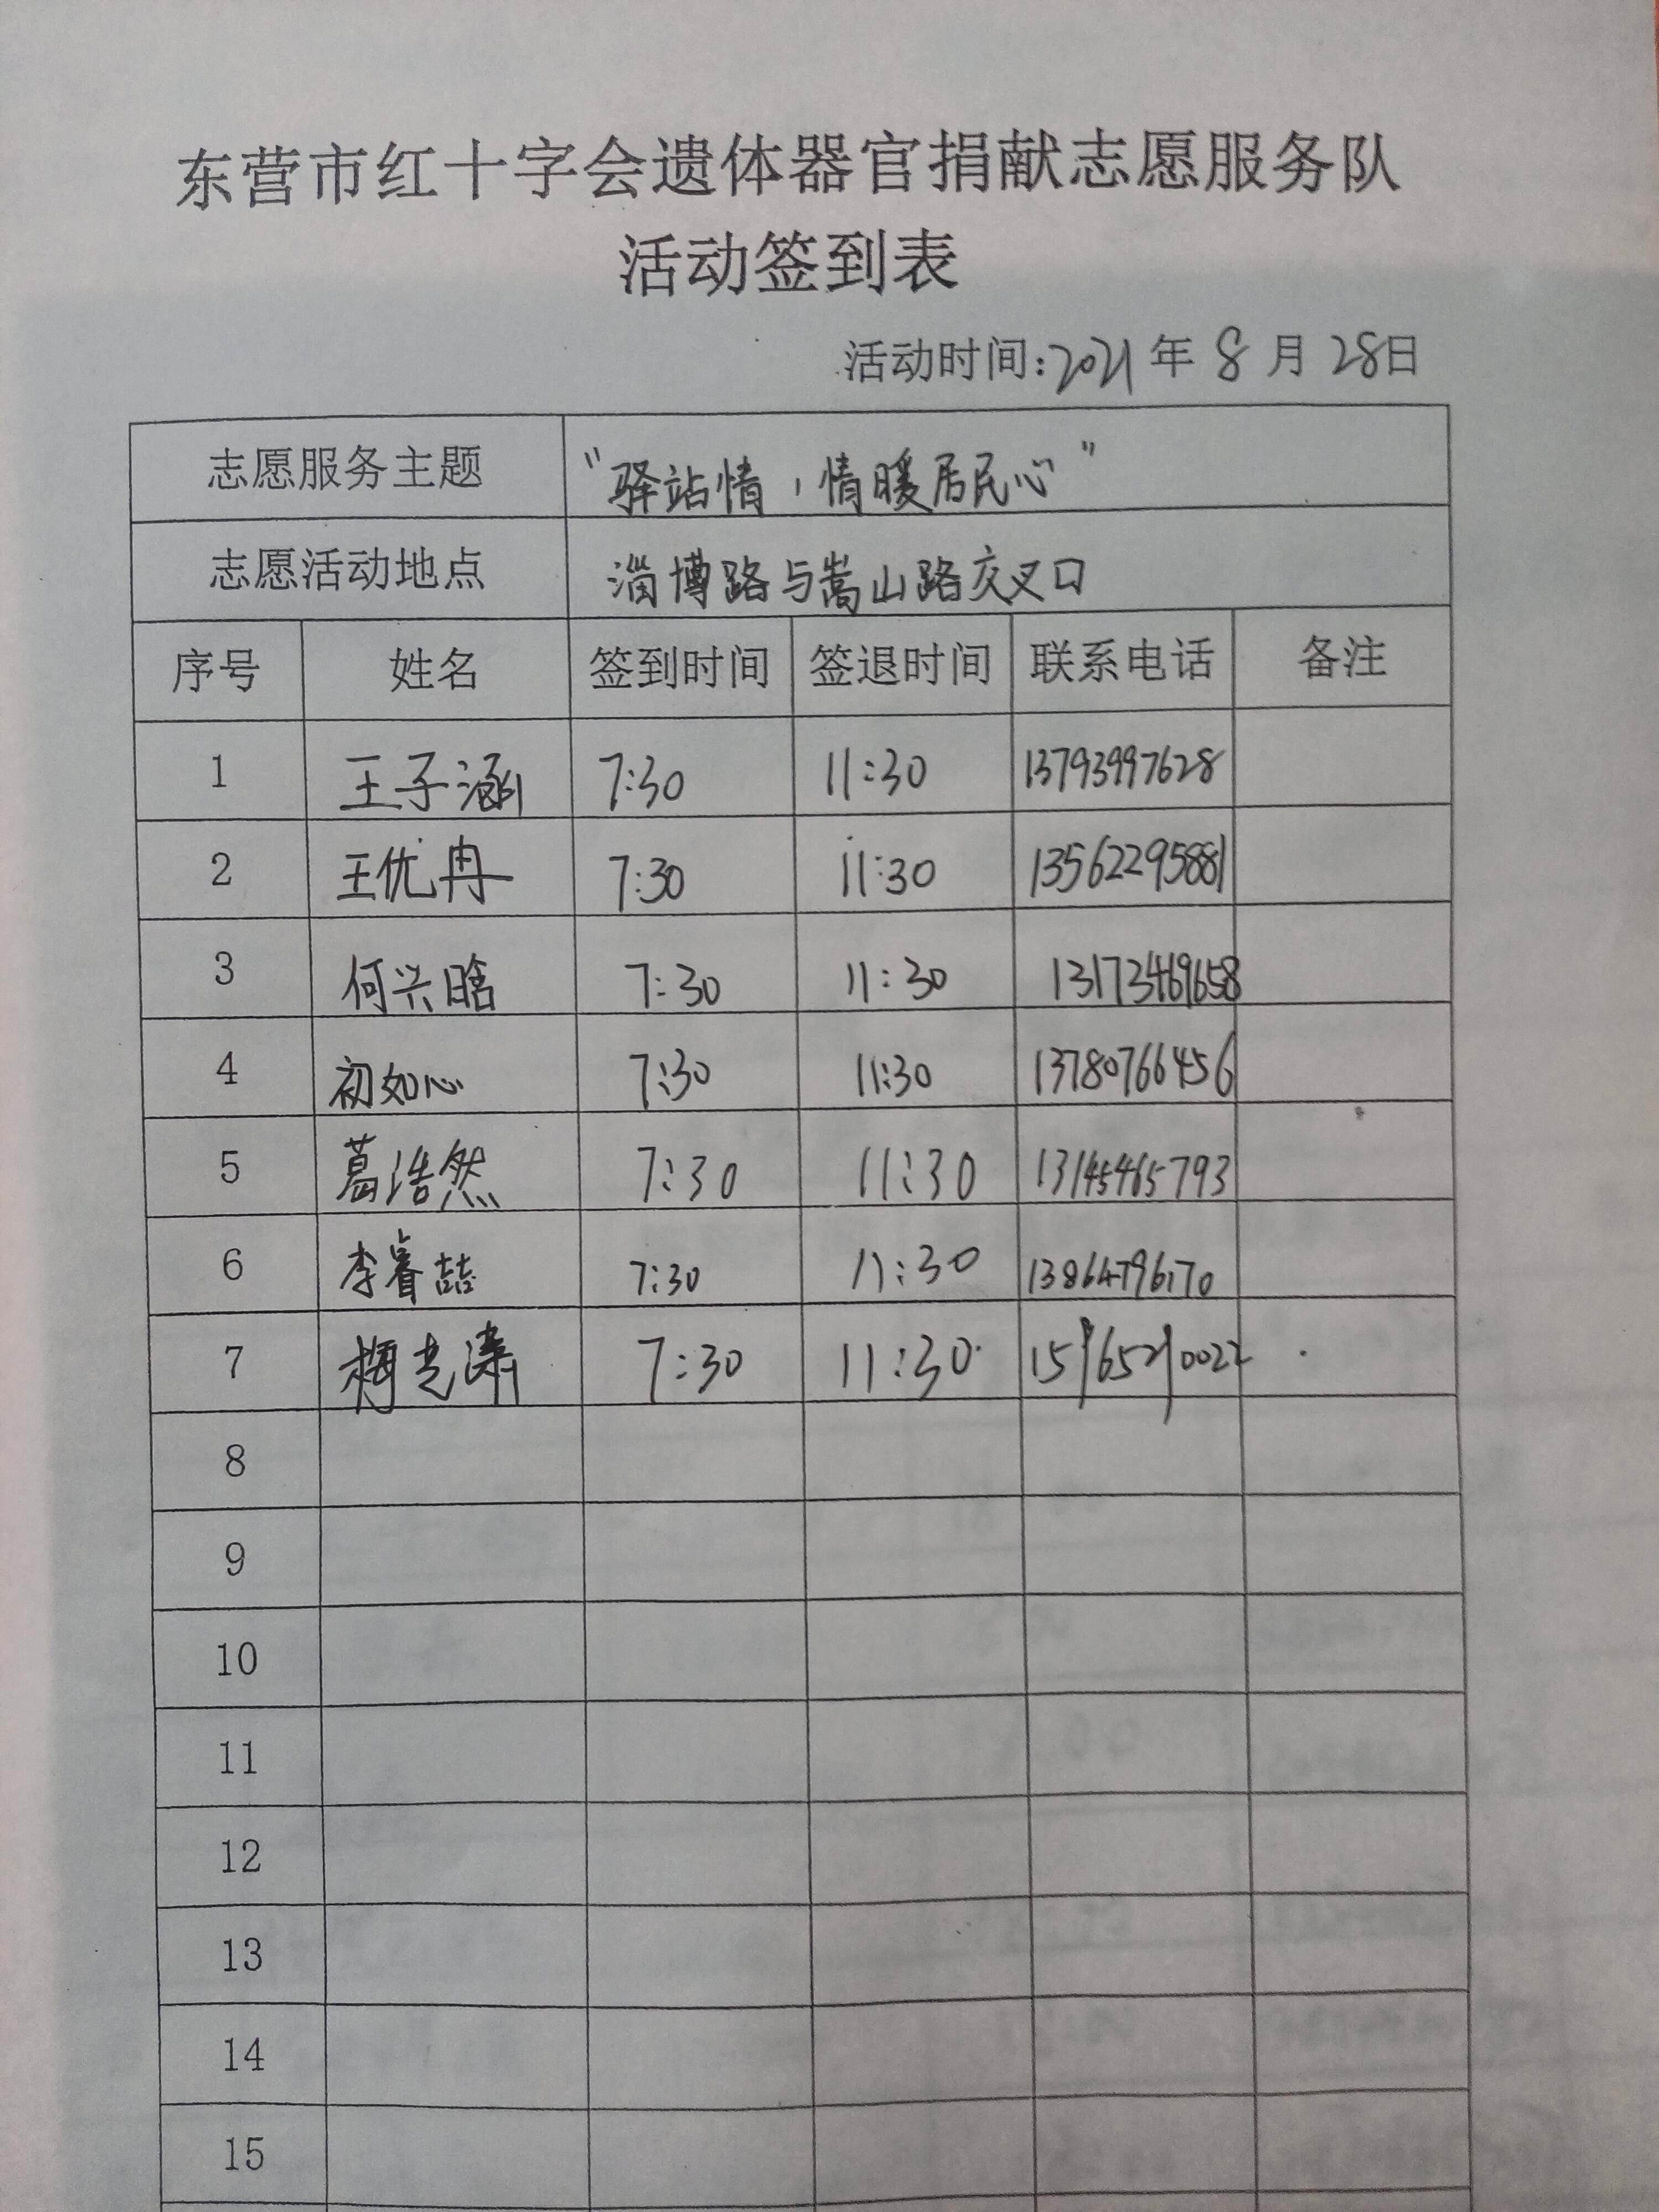 东营市红十字会遗体器官捐献志愿服务队
活动签到表
活动时间:2021年8月28日
志愿服务主题 "驿站情,情暖居民心"
志愿活动地点 淄博路与嵩山路交叉口
序号 姓名 签到时间 签退时间 联系电话 备注
1 王子涵 7:30 11:30 13793997628
2 王优冉 7:30 11:30 13562295881
3 何兴晗 7:30 11:30 13173469658
4 初如心 7:30 11:30 13780766456
5 葛浩然 7:30 11:30 13145465793
6 李睿喆 7:30 11:30 13864796170
7 7:30 11:30
8
9
10
11
12
13
14
15